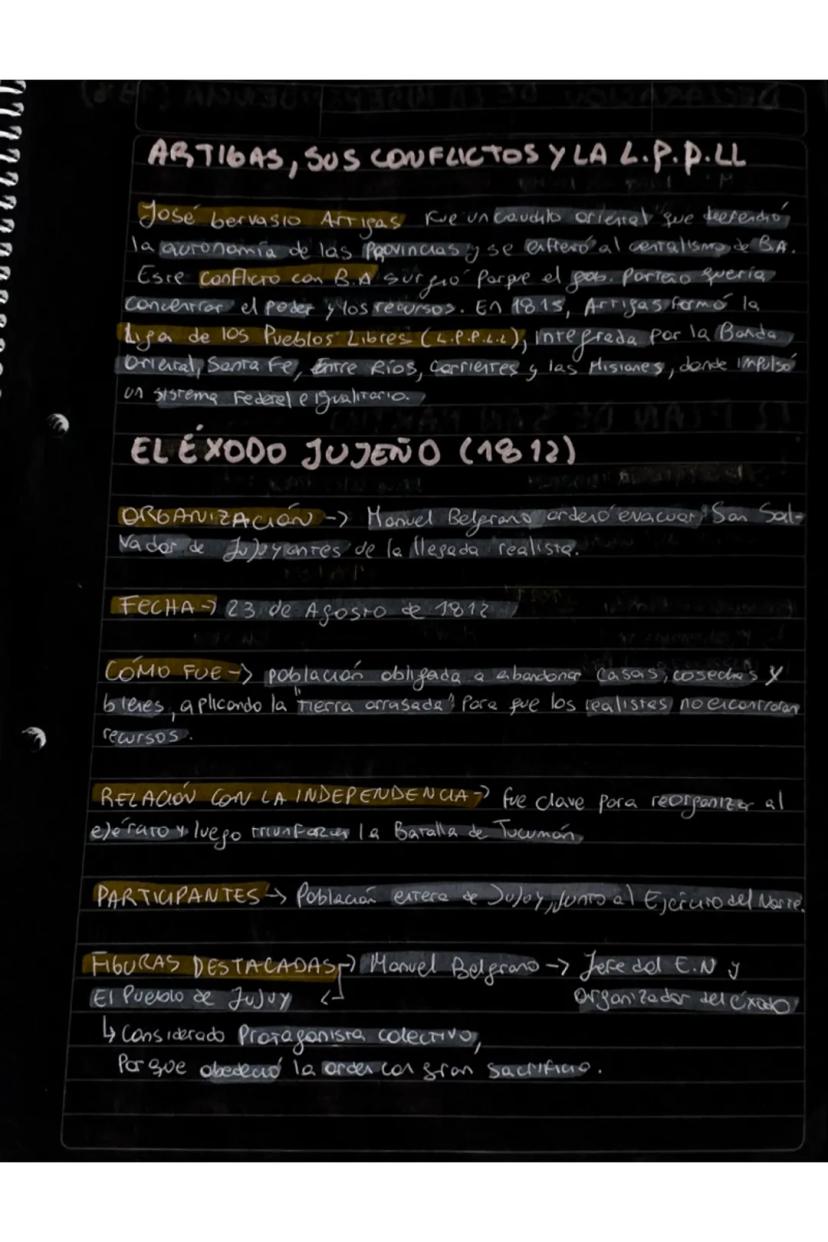 ARTIGAS, SUS CONFLICTOS Y LA L.P.P.LL
José Gervasio Artigas fue un caudillo oriental que defendió
la autonomía de las Provincias y se enfrentó al centralismo de B.A.
Este conflicto con B.A surgió porque el gob. Porteño quería
concentrar el poder y los recursos. En 1815, Artigas formó la
Liga de los Pueblos Libres (L.P.P.L.L), integrada por la Banda
Oriental, Santa Fe, Entre Ríos, Corrientes y las Misiones, donde impulsó
un sistema Federal e igualitario.
EL ÉXODO JUJEÑO (1812)
ORGANIZACIÓN -> Manuel Belgrano ordenó evacuar San Sal-
vador de Jujuy antes de la llegada realista.
FECHA -> 23 de Agosto de 1812
CÓMO FUE -> población obligada a abandonar casas, cosechas y
bienes, aplicando la "tierra arrasada" para que los realistas no encontraran
recursos.
RELACIÓN CON LA INDEPENDENCIA -> fue clave para reorganizar al
ejército y luego triunfar en la Batalla de Tucumán.
PARTICIPANTES -> Población entera de Jujuy, junto al Ejército del Norte.
FIGURAS DESTACADAS -> Manuel Belgrano -> Jefe del E.N y
El Pueblo de Jujuy <- organizador del éxodo
↳ Considerado Protagonista colectivo,
Porque obedeció la orden con gran sacrificio.